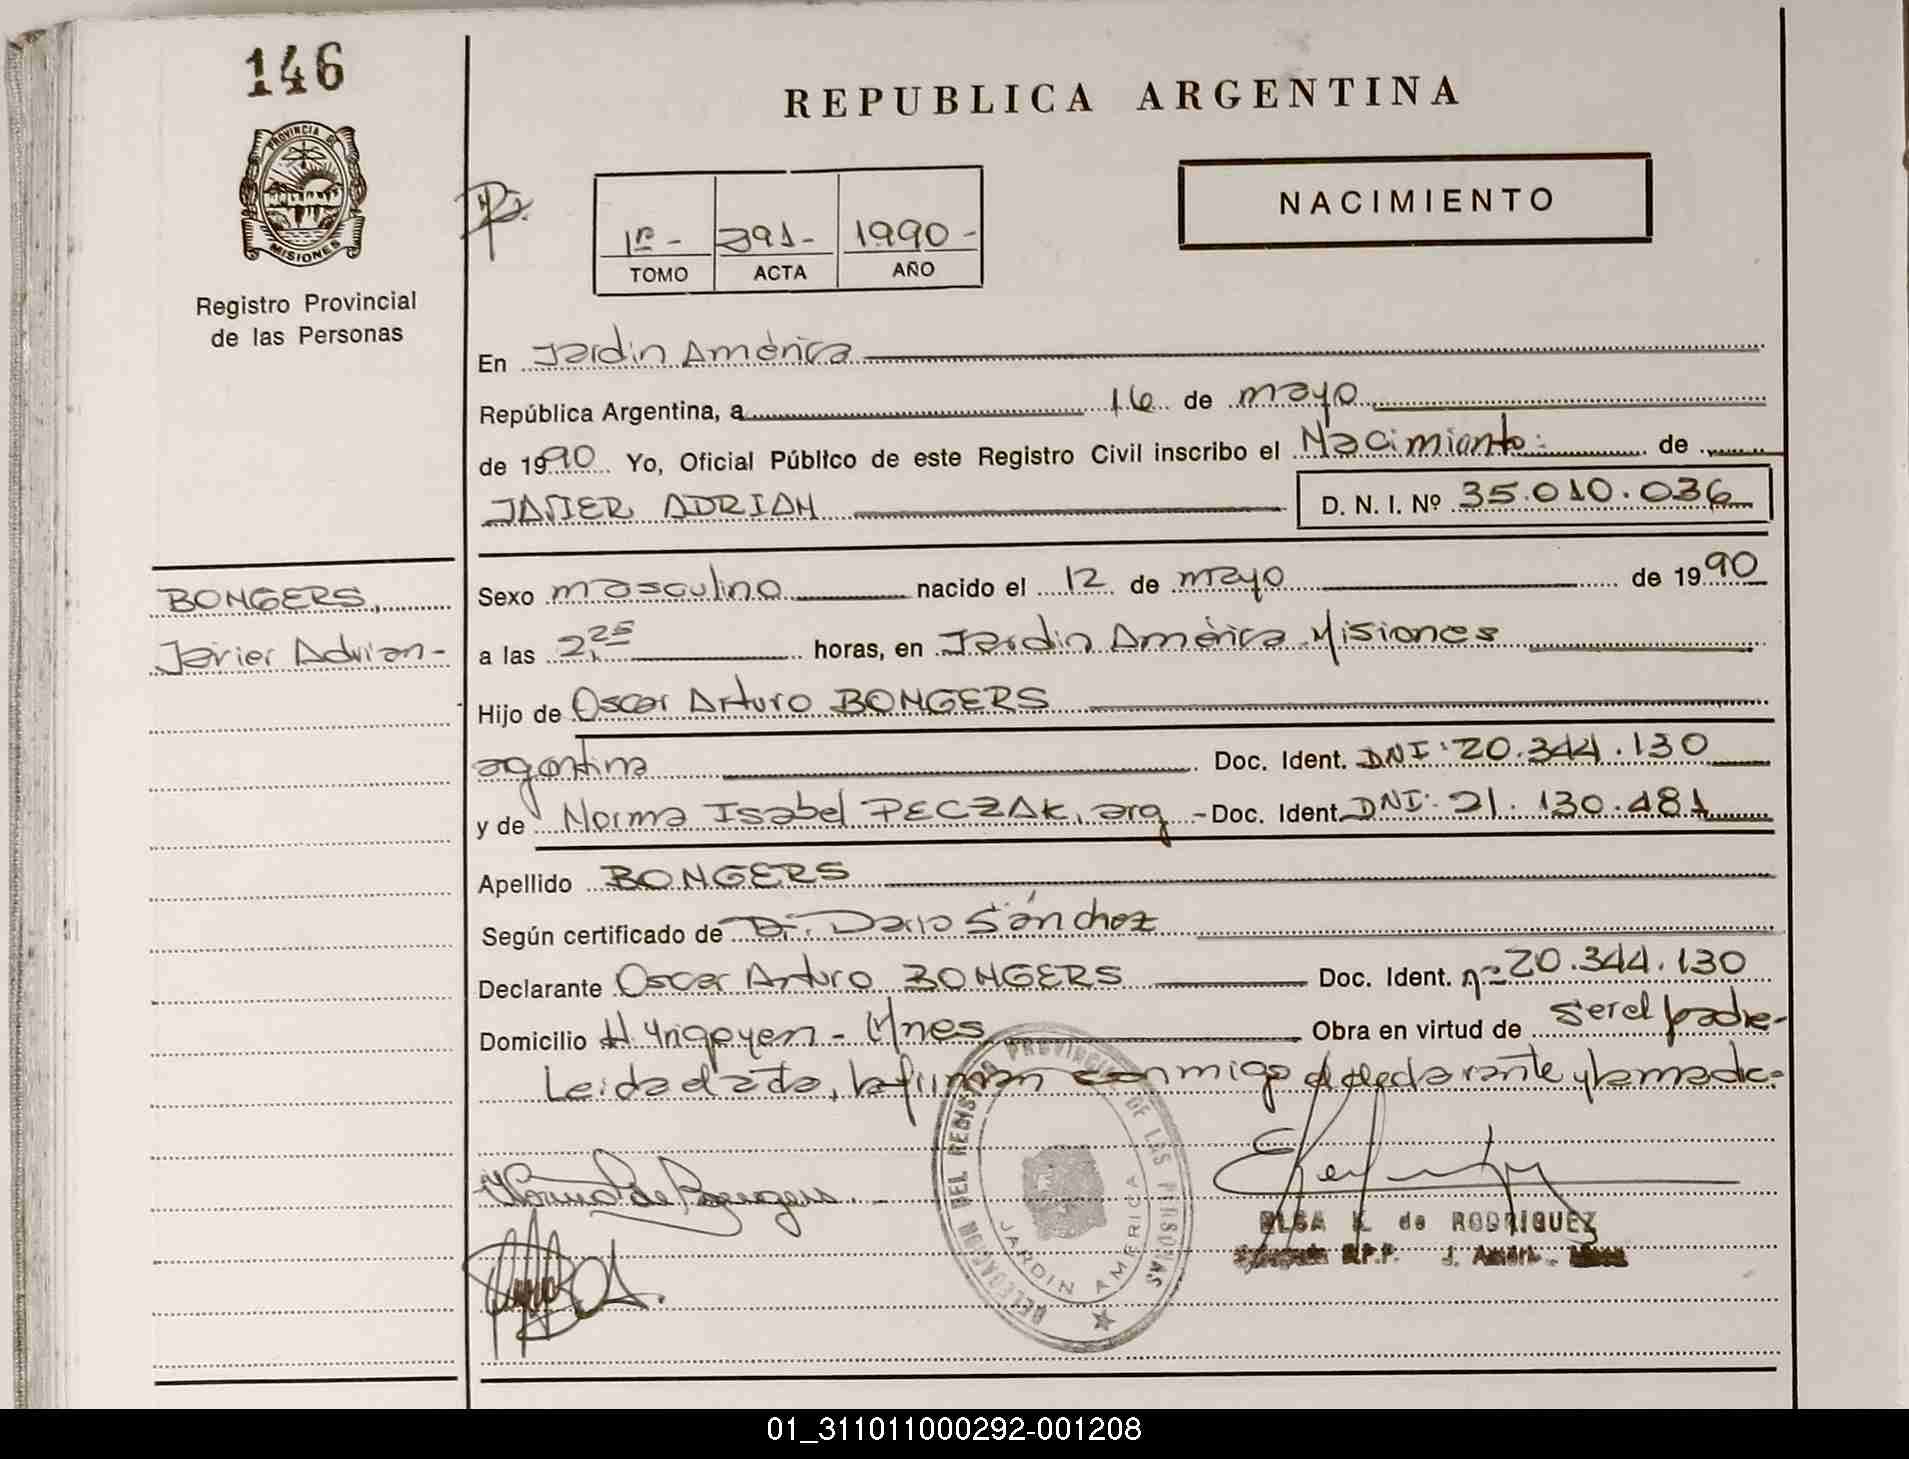 146
PROVINCIA DE
MISIONES
Registro Provincial
de las Personas
REPUBLICA ARGENTINA
NACIMIENTO
1º - 391- 1990 -
TOMO ACTA AÑO
En Jardin América
República Argentina, a 16 de mayo
de 1990 Yo, Oficial Público de este Registro Civil inscribo el Nacimiento: de
JAVIER ADRIAN D. N. I. Nº 35.010.036
BONGERS,
Javier Adrian -
Sexo masculino nacido el 12 de mayo de 1990
a las 2,25 horas, en Jardin América Misiones
Hijo de Oscar Arturo BONGERS
argentina Doc. Ident. DNI: 20.344.130
y de Norma Isabel PECZAK, arg - Doc. Ident. DNI: 21.130.481
Apellido BONGERS
Según certificado de Dr. Dario Sánchez
Declarante Oscar Arturo BONGERS Doc. Ident. nº 20.344.130
Domicilio H. Yrigoyen - Mnes Obra en virtud de ser el padre-
Leida el acta, la firman conmigo el declarante y la madre-
DELEGACION DEL REGISTRO PROVINCIAL DE LAS PERSONAS
JARDIN AMERICA
OLGA K. de RODRIGUEZ
R.P.P. J. Amér.
01_311011000292-001208